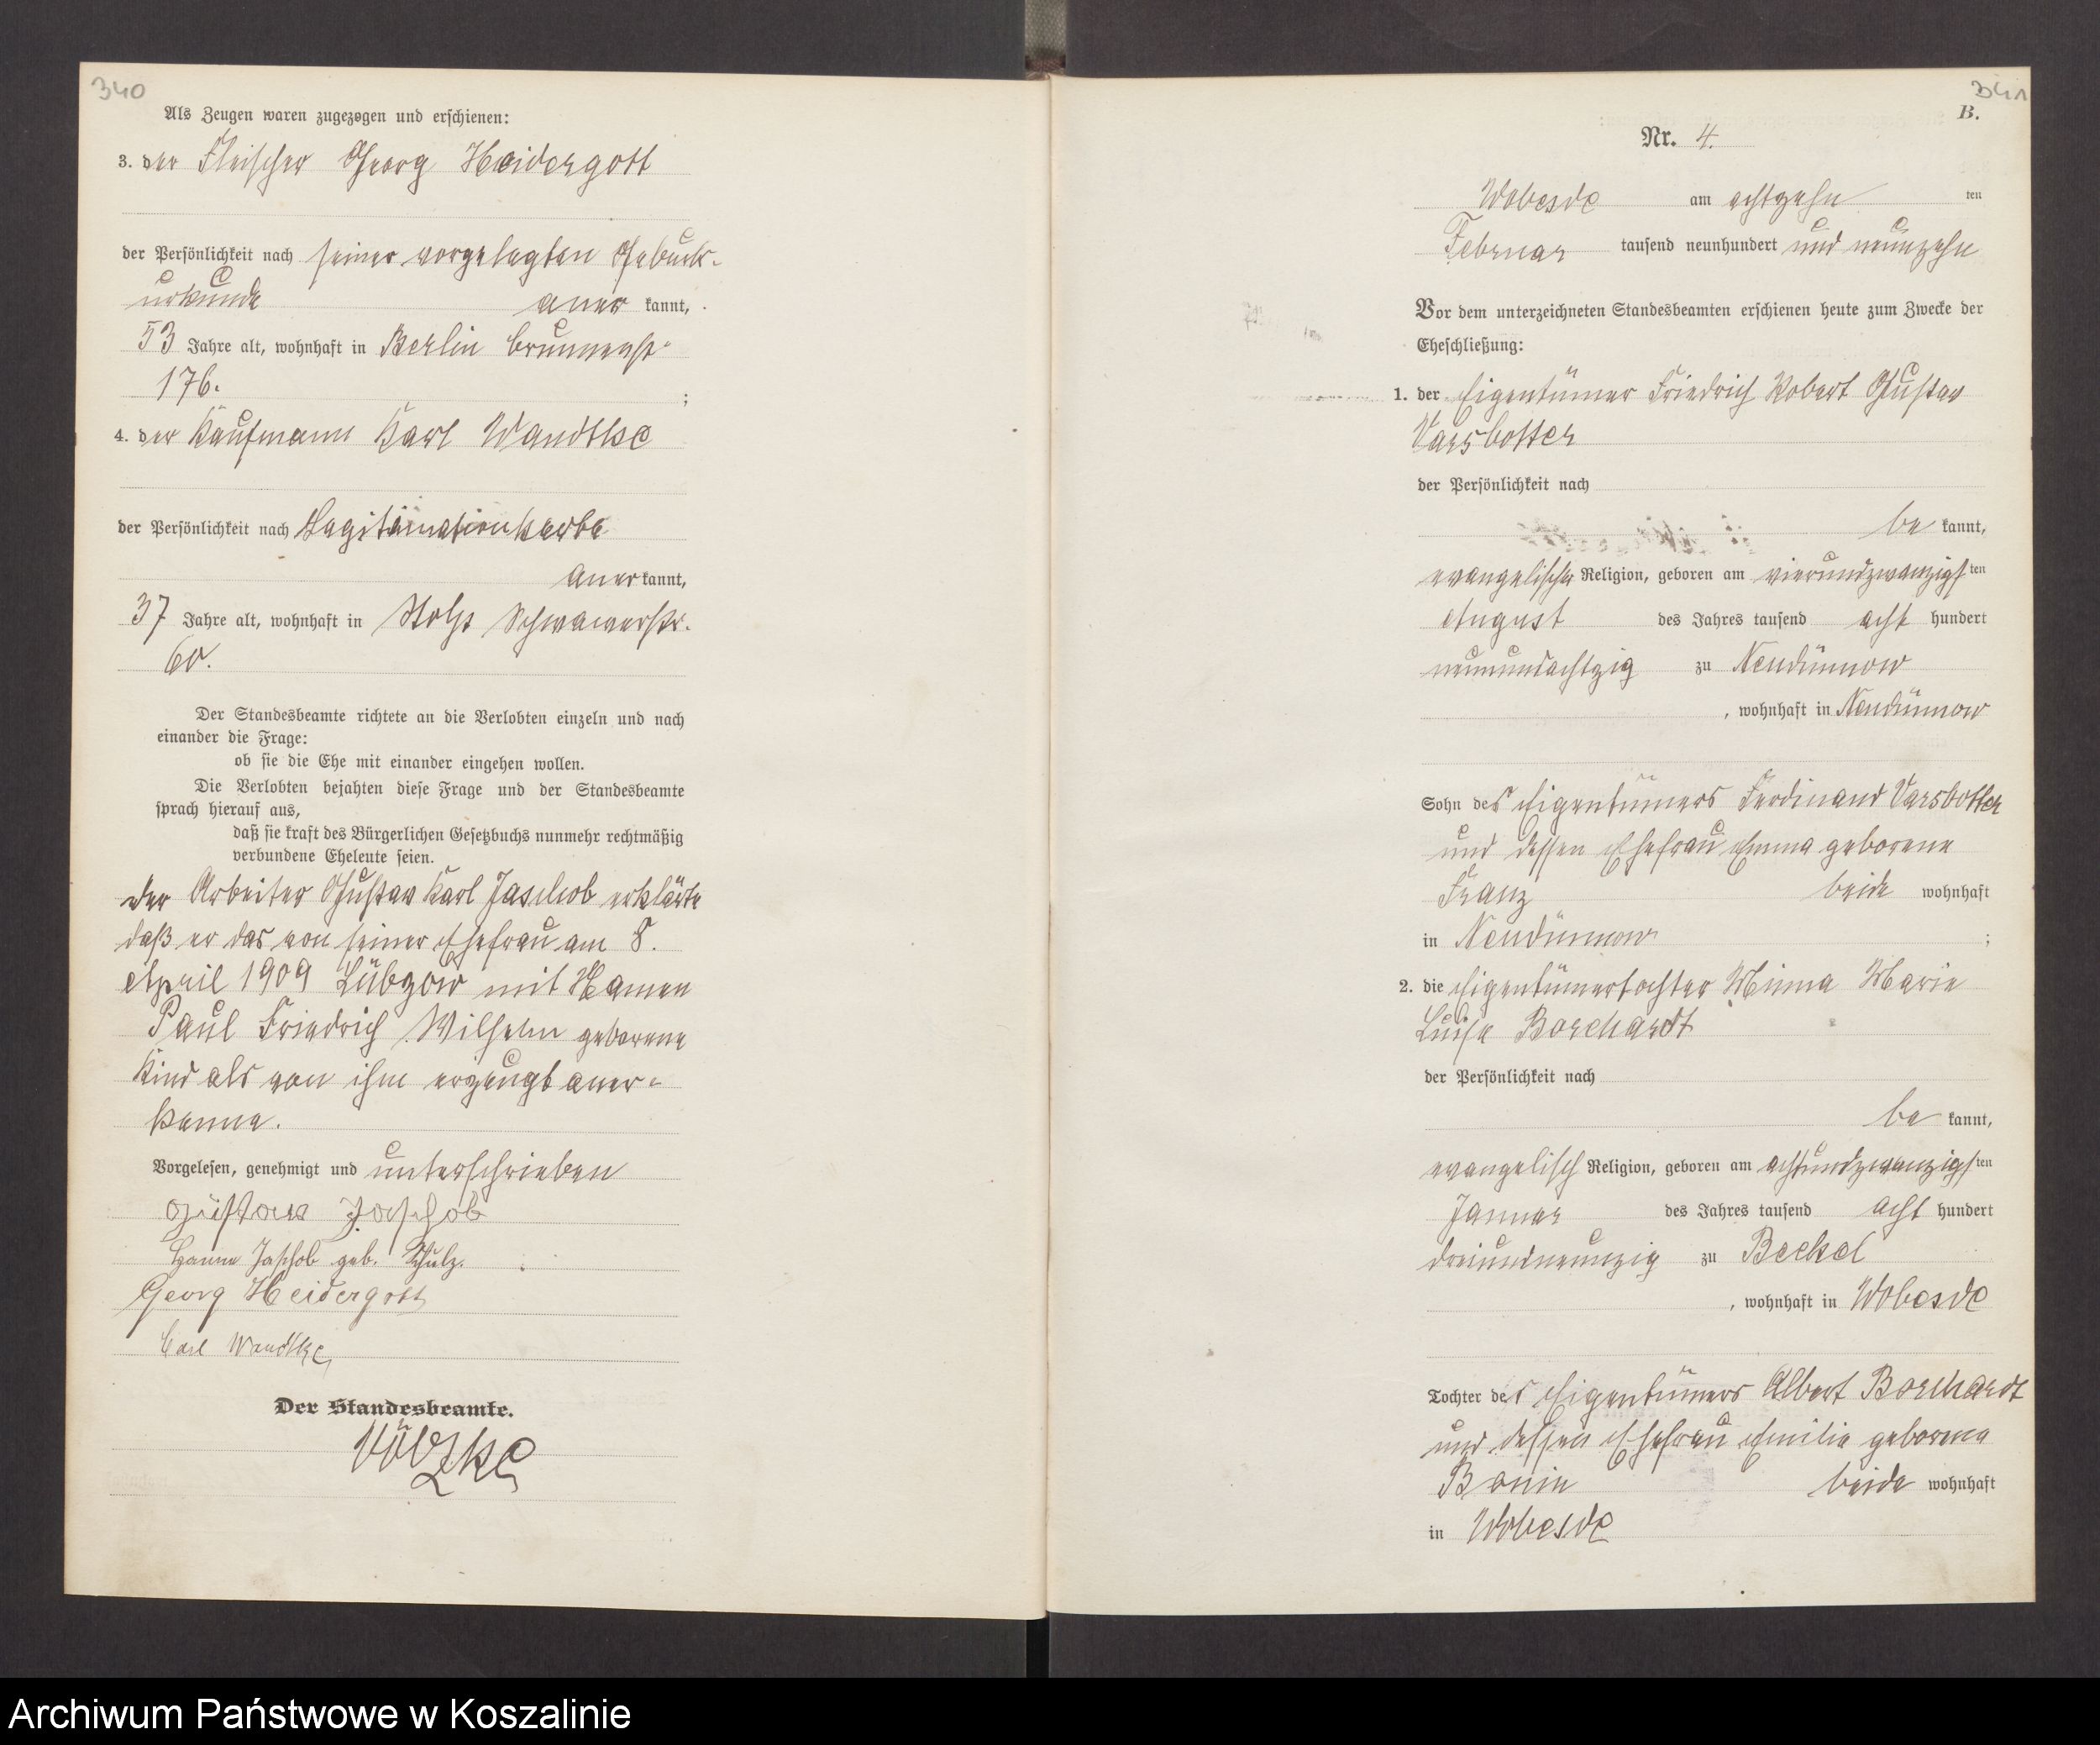 340
Als Zeugen waren zugezogen und erschienen:
3. der Fleischer Georg Heidergott
der Persönlichkeit nach seiner vorgelegten Geburts-
urkunde aner kannt,
53 Jahre alt, wohnhaft in Berlin Brunnenstr
176. ;
4. der Kaufmann Karl Wandtke
der Persönlichkeit nach Legitimationskarte
aner kannt,
37 Jahre alt, wohnhaft in Stolp
60.
Der Standesbeamte richtete an die Verlobten einzeln und nach
einander die Frage:
ob sie die Ehe mit einander eingehen wollen.
Die Verlobten bejahten diese Frage und der Standesbeamte
sprach hierauf aus,
daß sie kraft des Bürgerlichen Gesetzbuchs nunmehr rechtmäßig
verbundene Eheleute seien.
der Arbeiter Gustav Karl Jaschob erklärte
daß er das von seiner Ehefrau am 8.
April 1909 Lübzow mit Namen
Paul Friedrich Wilhelm geborene
Kind als von ihm erzeugt aner-
kenne.
Vorgelesen, genehmigt und unterschrieben
Gustav Jaschob
Hanna Jaschob geb. Schulz.
Georg Heidergott
Carl Wandtke
Der Standesbeamte.
341
B.
Nr. 4.
Wobesde am achtzehn ten
Februar tausend neunhundert und neunzehn
Vor dem unterzeichneten Standesbeamten erschienen heute zum Zwecke der
Eheschließung:
1. der Eigentümer Friedrich Robert Gustav
Varsbotter
der Persönlichkeit nach
be kannt,
evangelischer Religion, geboren am vierundzwanzigsten
August des Jahres tausend acht hundert
neunundachtzig zu Neudünnow
, wohnhaft in Neudünnow
Sohn des Eigentümers Ferdinand Varsbotter
und dessen Ehefrau Emma geborene
Franz beide wohnhaft
in Neudünnow ;
2. die Eigentümertochter Minna Marie
Luise Borchardt
der Persönlichkeit nach
be kannt,
evangelisch Religion, geboren am achtundzwanzigsten
Januar des Jahres tausend acht hundert
dreiundneunzig zu Beckel
, wohnhaft in Wobesde
Tochter des Eigentümers Albert Borchardt
und dessen Ehefrau Emilie geborene
Bonin beide wohnhaft
in Wobesde
Archiwum Państwowe w Koszalinie